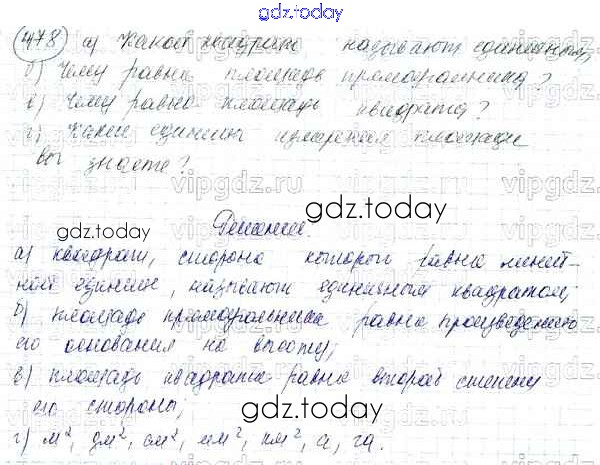 gdz.today
478 а) Какой квадрат называют единичным,
б) Чему равна площадь прямоугольника?
в) Чему равна площадь квадрата?
г) Какие единицы измерения площади
вы знаете?
gdz.today
gdz.today
Решение.
а) квадрат, сторона которого равна линей-
ной единице, называют единичным квадратом;
б) площадь прямоугольника равна произведению
его основания на высоту;
в) площадь квадрата равна второй степени
его стороны;
gdz.today
г) м², дм², см², мм², км², а, га.